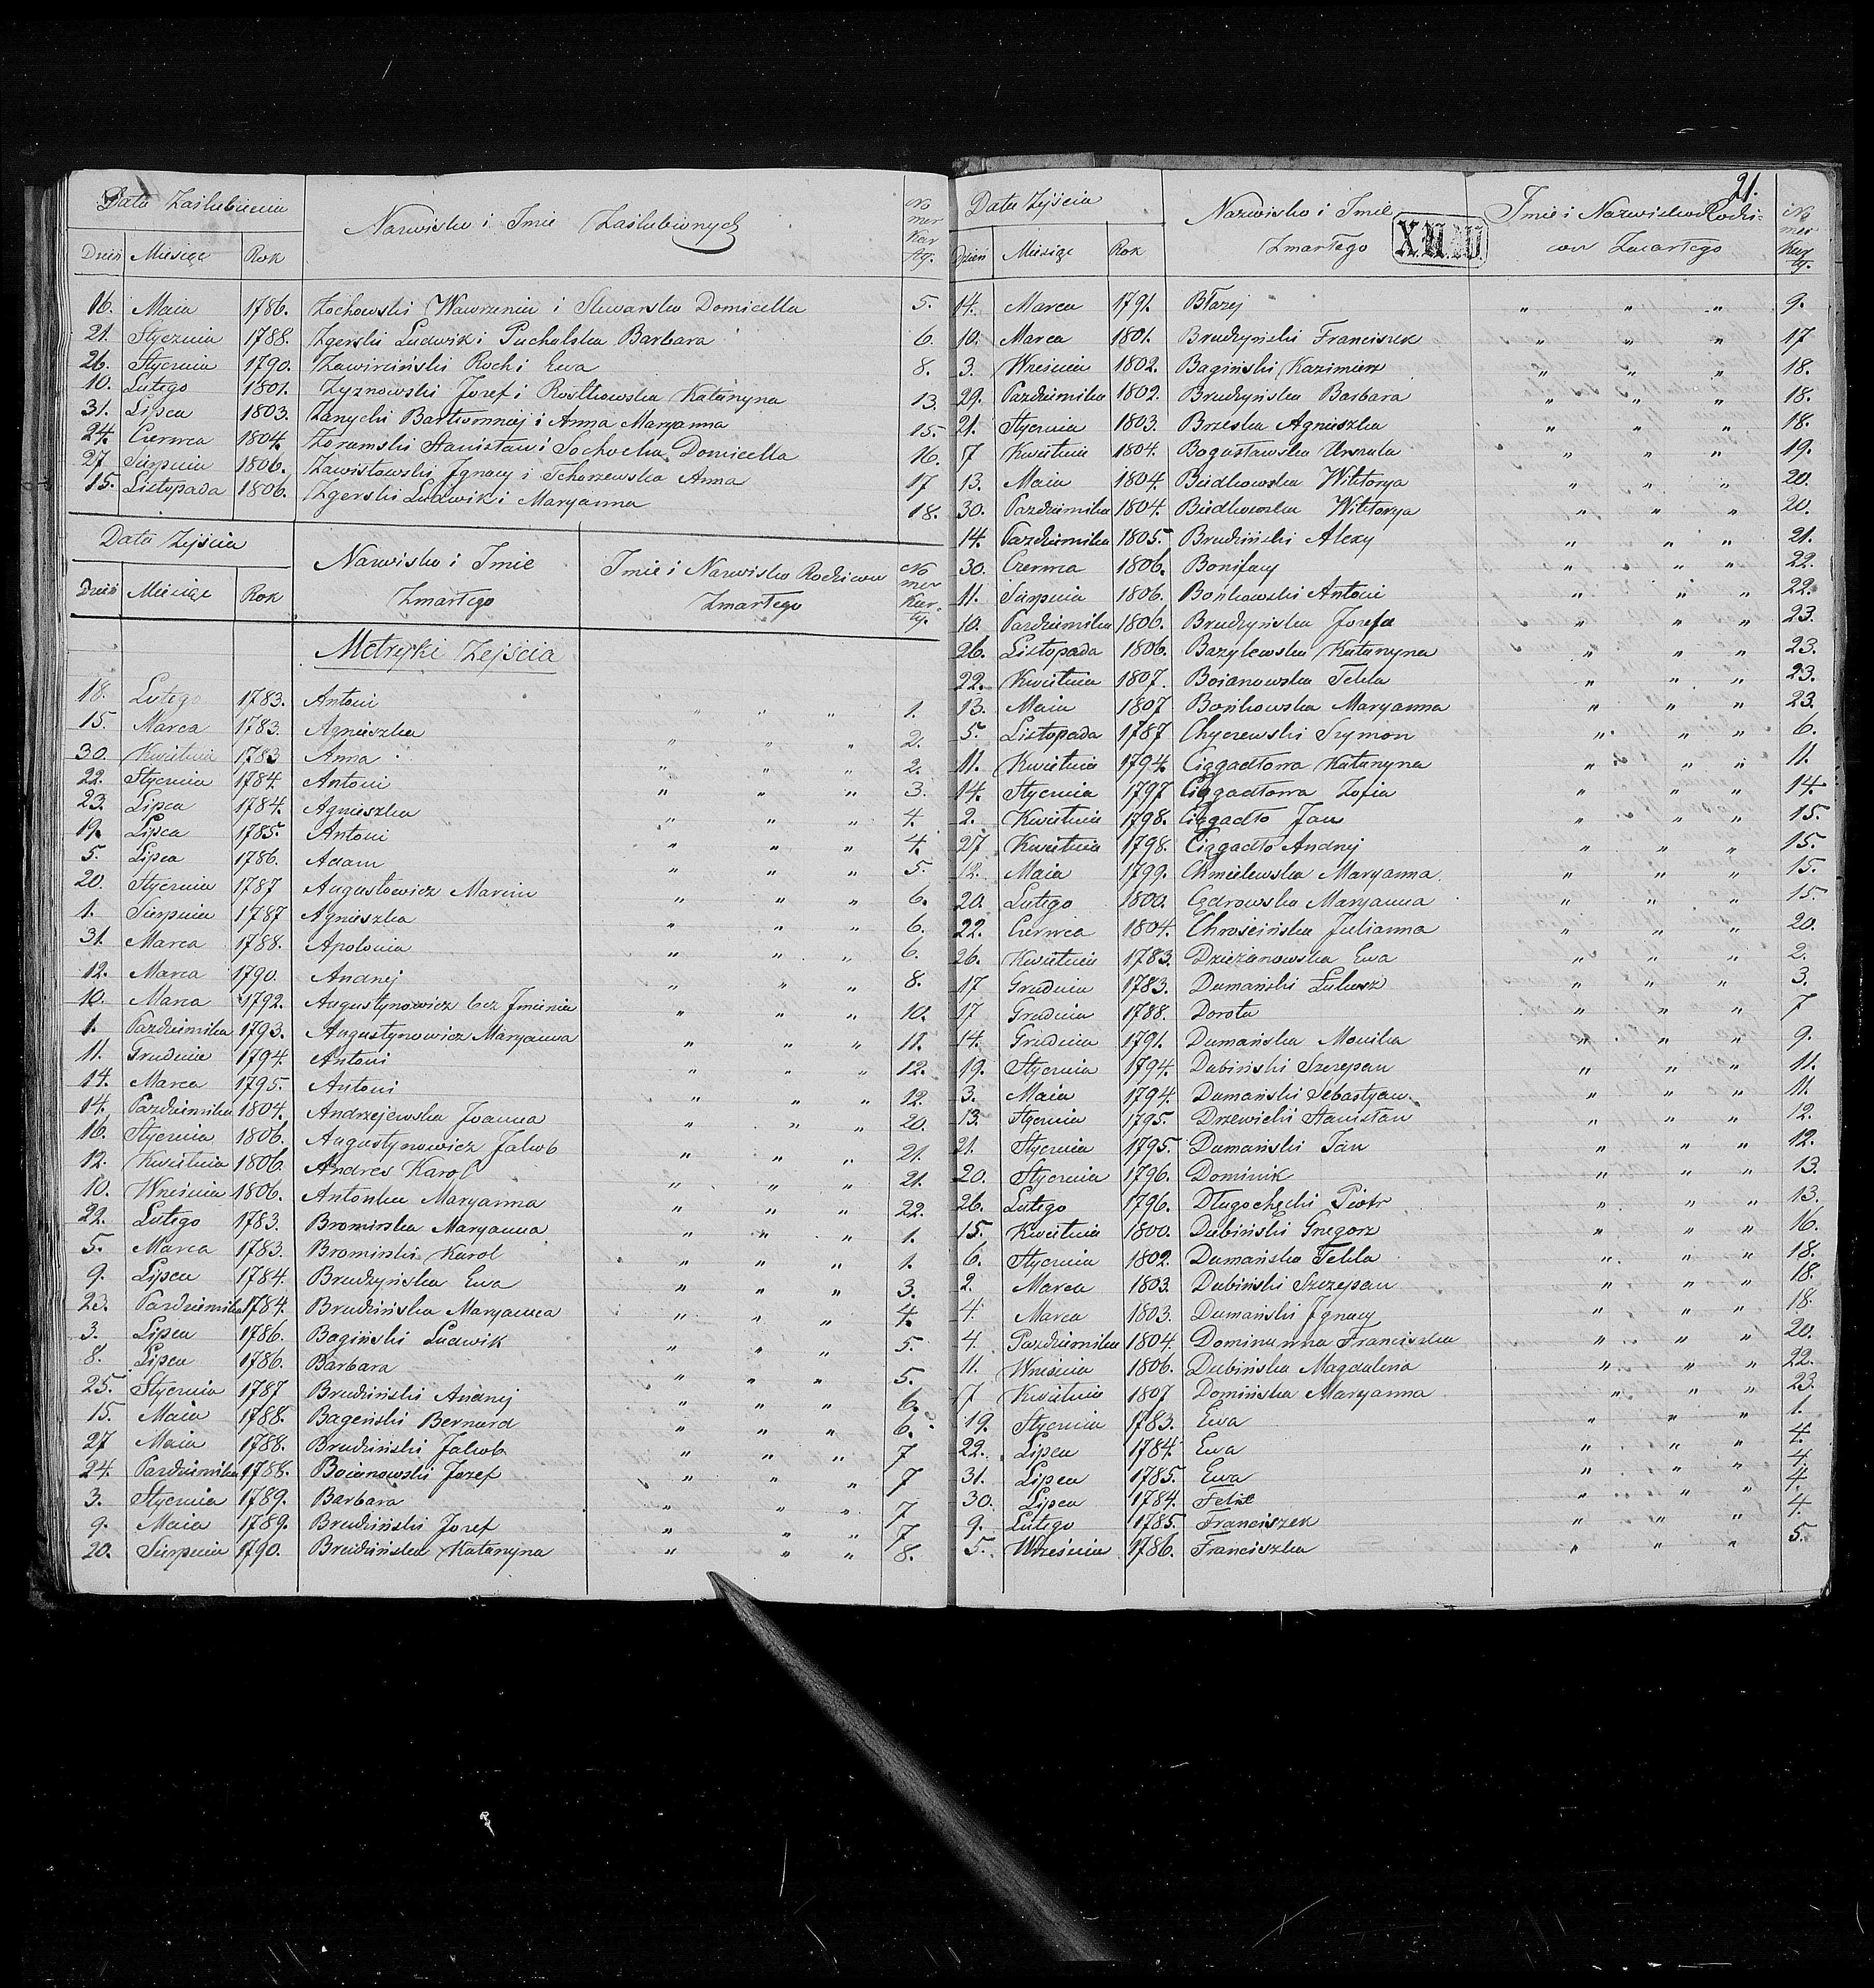 Data Zaślubienia
Nazwisko i Imie Zaślubionych
No mer Kar ty.
Dzień Miesiąc Rok
16. Maia 1786. Żochowski Wawrzeniec i Domicella 5.
21. Stycznia 1788. Zgerski Ludwik i Puchalska Barbara 6.
26. Stycznia 1790. Zawirciński Roch i Ewa 8.
10. Lutego 1801. Zyznowski Jozef i Rostkowska Katarzyna 13.
31. Lipca 1803. Zanycki Bartłomiej i Anna Maryanna 15.
24. Czerwca 1804. Zaramski Stanisław i Sochocka Domicella 16.
27 Sierpnia 1806. Zawistowski Jgnacy i Tchorzewska Anna 17
15. Listopada 1806. Zgerski Ludwik i Maryanna 18.
Data Zejścia
Nazwisko i Imie Zmarłego
Imie i Nazwisko Rodziców Zmarłego
No mer Kar- ty.
Dzień Miesiąc Rok
Metryki Zejścia
18. Lutego 1783. Antoni " " " 1.
15. Marca 1783. Agnieszka " " " 2.
30. Kwietnia 1783 Anna " " " 2.
22. Stycznia 1784. Antoni " " " 3.
23. Lipca 1784. Agnieszka " " " 4.
19. Lipca 1785. Antoni " " " 4.
5. Lipca 1786. Adam " " " 5.
20. Stycznia 1787 Augustowicz Marcin " " " 6.
1. Sierpnia 1787 Agnieszka " " " 6.
31. Marca 1788. Apolonia " " " 6.
12. Marca 1790. Andrzej " " " 8.
10. Marca 1792. Augustynowicz bez Jmienia " " " 10.
1. Pazdziernika 1793. Augustynowicz Maryanna " " " 11.
11. Grudnia 1794. Antoni " " " 12.
14. Marca 1795. Antoni " " " 12.
14. Pazdziernika 1804. Andrzejewska Joanna " " " 20.
16. Stycznia 1806. Augustynowicz Jakob " " " 21.
12. Kwietnia 1806. Andres Karol " " " 21.
10. Wrzesnia 1806. Antonka Maryanna " " " 22.
22. Lutego 1783. Bromirska Maryanna " " " 1.
5. Marca 1783. Bromirski Karol " " " 1.
9. Lipca 1784. Brudzyńska Ewa " " " 3.
23. Pazdziernika 1784. Brudzińska Maryanna " " " 4.
3. Lipca 1786. Bagiński Ludwik " " " 5.
8. Lipca 1786. Barbara " " " 5.
25. Stycznia 1787 Brudziński Andrzej " " " 6.
15. Maia 1788. Bageński Bernard " " " 6.
27 Maia 1788. Brudziński Jakob " " " 7
24. Pazdziernika 1788. Boianowski Jozef " " " 7
3. Stycznia 1789. Barbara " " " 7
9. Maia 1789. Brudziński Jozef " " " 7
20. Sierpnia 1790. Brudzińska Katarzyna " " " 8.
21.
Data Zejścia
Nazwisko i Imie Zmarłego
Imie i Nazwisko Rodzi- ców Zmarłego
No mer Kar ty.
Dzień Miesiąc Rok
14. Marca 1791. Błazej " " " 9.
10. Marca 1801. Brudzyński Franciszek " " " 17
3. Wrześnie 1802. Bagiński Kazimierz " " " 18.
29. Pazdziernika 1802. Brudzyńska Barbara " " " 18.
21. Stycznia 1803. Brzeska Agnieszka " " " 18.
7 Kwietnia 1804. Bogusławska Urszula " " " 19.
13. Maia 1804 Budkowska Wiktorya " " " 20.
30. Pazdziernika 1804. Budkowska Wiktorya " " " 20.
14. Pazdziernika 1805. Brudziński Alexy " " " 21.
30. Czerwca 1806. Bonifacy " " " 22.
11. Sierpnia 1806. Bońkowski Antoni " " " 22.
10. Pazdziernika 1806. Brudzyńska Jozefa " " " 23.
26. Listopada 1806. Bazylewska Katarzyna " " " 23.
22. Kwietnia 1807. Boianowska Tekla " " " 23.
13. Maia 1807 Bońkowska Maryanna " " " 23.
5. Listopada 1787 Chyczewski Szymon " " " 6.
11. Kwietnia 1794. Ciągadłowa Katarzyna " " " 11.
14. Stycznia 1797 Ciągadłowa Zofia " " " 14.
2. Kwietnia 1798. Ciągadło Jan " " " 15.
27 Kwietnia 1798. Ciągadło Andrzej " " " 15.
12. Maia 1799. Chmielewska Maryanna " " " 15.
20. Lutego 1800. Cędrowska Maryanna " " " 15.
22. Czerwca 1804. Chrościńska Julianna " " " 20.
26. Kwietnia 1783. Dzieżanowska Ewa " " " 2.
17 Grudnia 1783. Dumański Łukasz " " " 3.
17 Grudnia 1788. Dorota " " " 7
14. Grudnia 1791. Dumańska Monika " " " 9.
19. Stycznia 1794. Dubiński Szczepan " " " 11.
3. Maia 1794. Dumański Sebastyan " " " 11.
13. Stycznia 1795. Drzewicki Stanisław " " " 12.
21. Stycznia 1795. Dumański Jan " " " 12.
20. Stycznia 1796. Dominik " " " 13.
26. Lutego 1796. Długochęcki Piotr " " " 13.
15. Kwietnia 1800. Dubiński Gregorz " " " 16.
6. Stycznia 1802. Dumańska Tekla " " " 18.
2. Marca 1803. Dubiński Szczepan " " " 18.
4. Marca 1803. Dumański Jgnacy " " " 18.
4. Pazdziernika 1804. Franciszka " " " 20.
11. Wrzesnia 1806. Dubińska Magdalena " " " 22.
7 Kwietnia 1807 Domińska Maryanna " " " 23.
19. Stycznia 1783. Ewa " " " 1.
22. Lipca 1784. Ewa " " " 4.
31. Lipca 1785. Ewa " " " 4.
30. Lipca 1784. Felix " " " 4.
9. Lutego 1785. Franciszek " " " 4.
5. Wrzesnia 1786. Franciszka " " " 5.